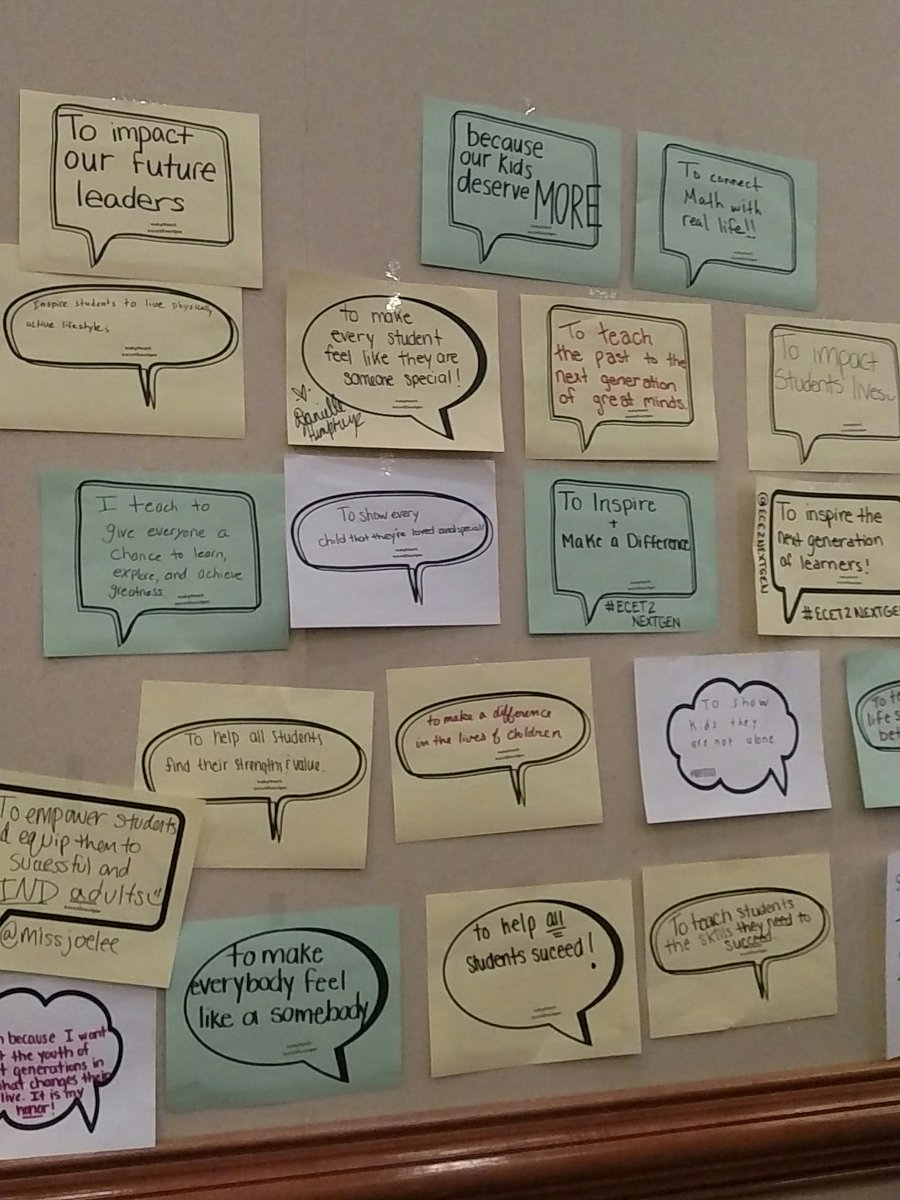 To impact
our future
leaders
because
our kids
deserve MORE
To connect
Math with
real life!!
Inspire students to live physically
active lifestyles
to make
every student
feel like they are
someone special!
Danielle
Humphrys
To teach
the past to the
next generation
of great minds.
To impact
Students lives
I teach to
give everyone a
chance to learn,
explore, and achieve
greatness.
To show every
child that they're loved and special!
To Inspire
+
Make a Difference
#ECET2
NEXTGEN
@ECET2NEXTGEN
To inspire the
next generation
of learners!
#ECET2NEXTGE
To help all students
find their strength & value.
to make a difference
in the lives of children
To show
kids they
are not alone
To te
life s
bet
To empower students
d equip them to
successful and
IND adults
@missjoelee
to make
everybody feel
like a somebody
to help all
students suceed!
To teach students
the skills they need to
succeed.
because I want
the youth of
generations in
hat changes the
live. It is my
honor!